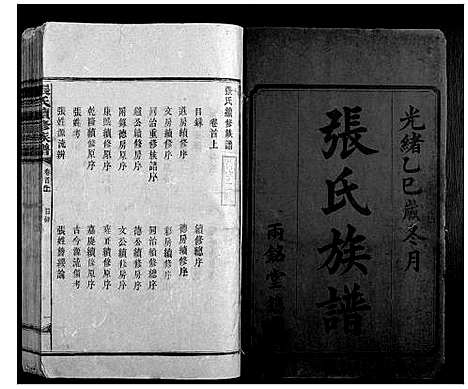 光緒乙巳歲冬月
張氏族譜
張氏續修族譜
卷首上
目錄
續修總序
道房續修序
德房續修序
文房續修序
彩房續修序
同治重修族譜序
同治續修總序
附錄德房原序
文公續修序
康熙續修原序
雍正續修原序
乾隆續修原序
嘉慶續修原序
張姓考
古今源流備考
張姓源流辨
張氏續修族譜
卷首上
目錄